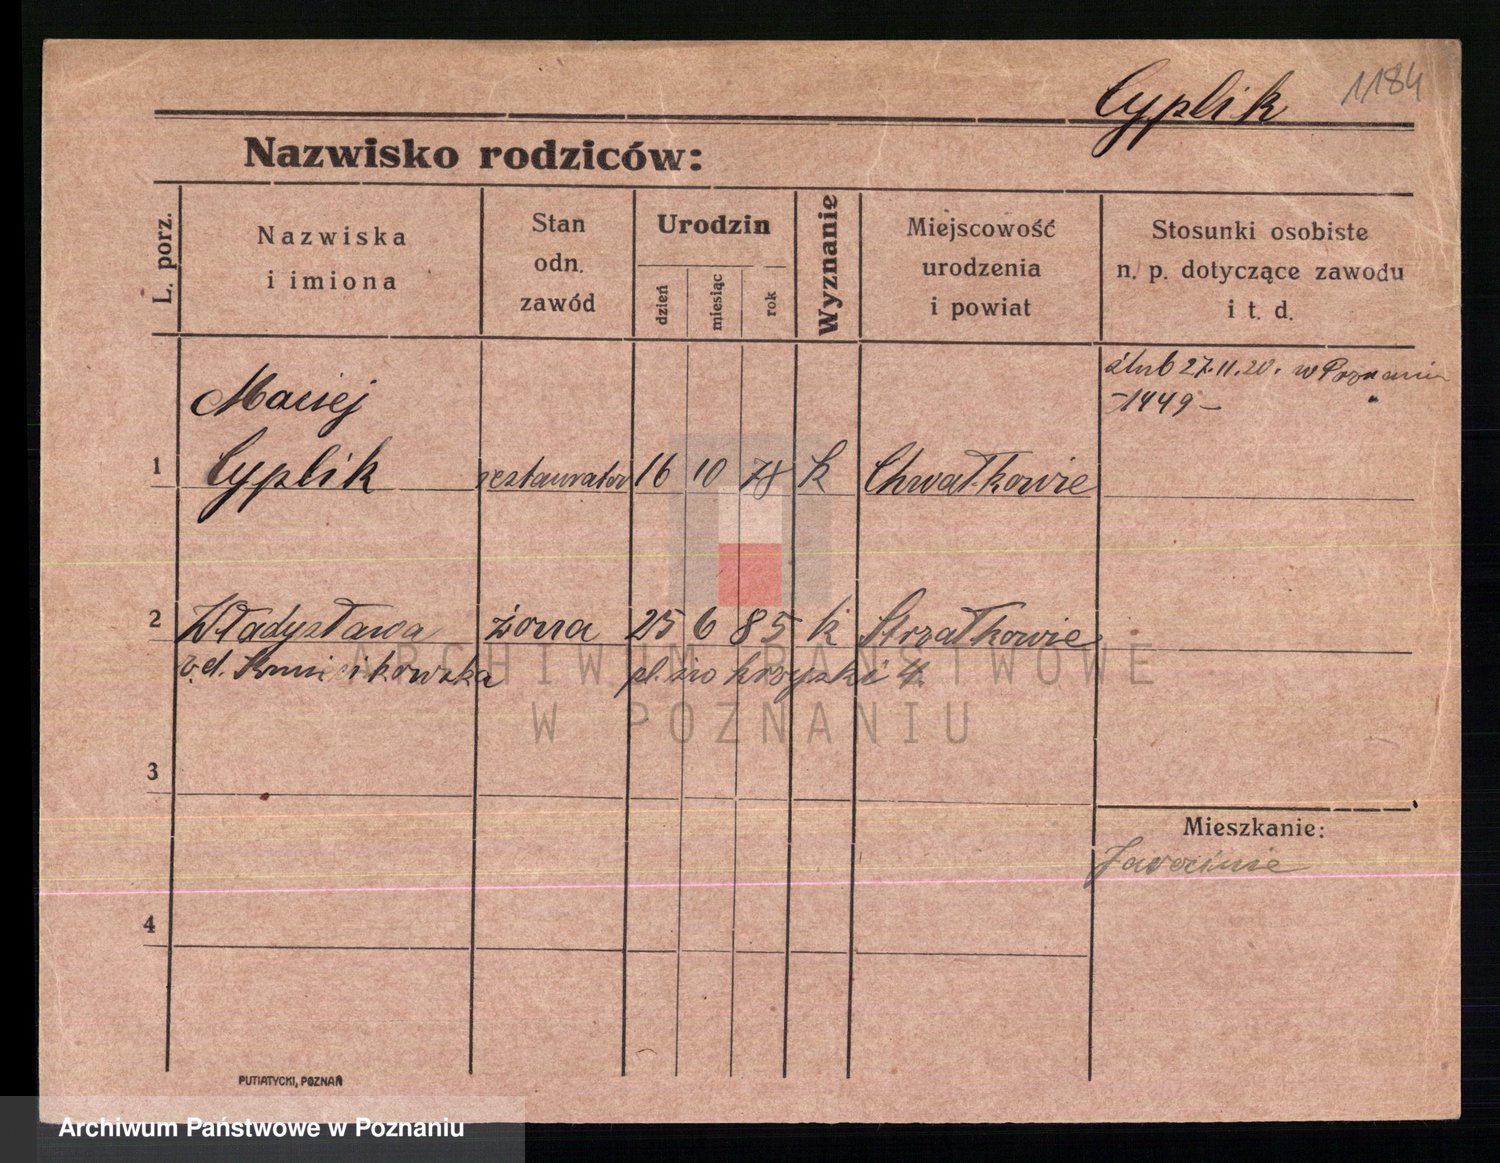 Cyplik 1184
Nazwisko rodziców:
L. porz.
Nazwiska
i imiona
Stan
odn.
zawód
Urodzin
dzień
miesiąc
rok
Wyznanie
Miejscowość
urodzenia
i powiat
Stosunki osobiste
n. p. dotyczące zawodu
i t. d.
ślub 27.11.20. w Poznaniu
-1449-
Maciej
1 Cyplik restaurator 16 10 78 k Chwałkowie
2 Władysława żona 25 6 85 k Strzałkowie
pl. 4
ARCHIWUM PAŃSTWOWE
W POZNANIU
3
Mieszkanie:
4
PUTIATYCKI, POZNAŃ
Archiwum Państwowe w Poznaniu